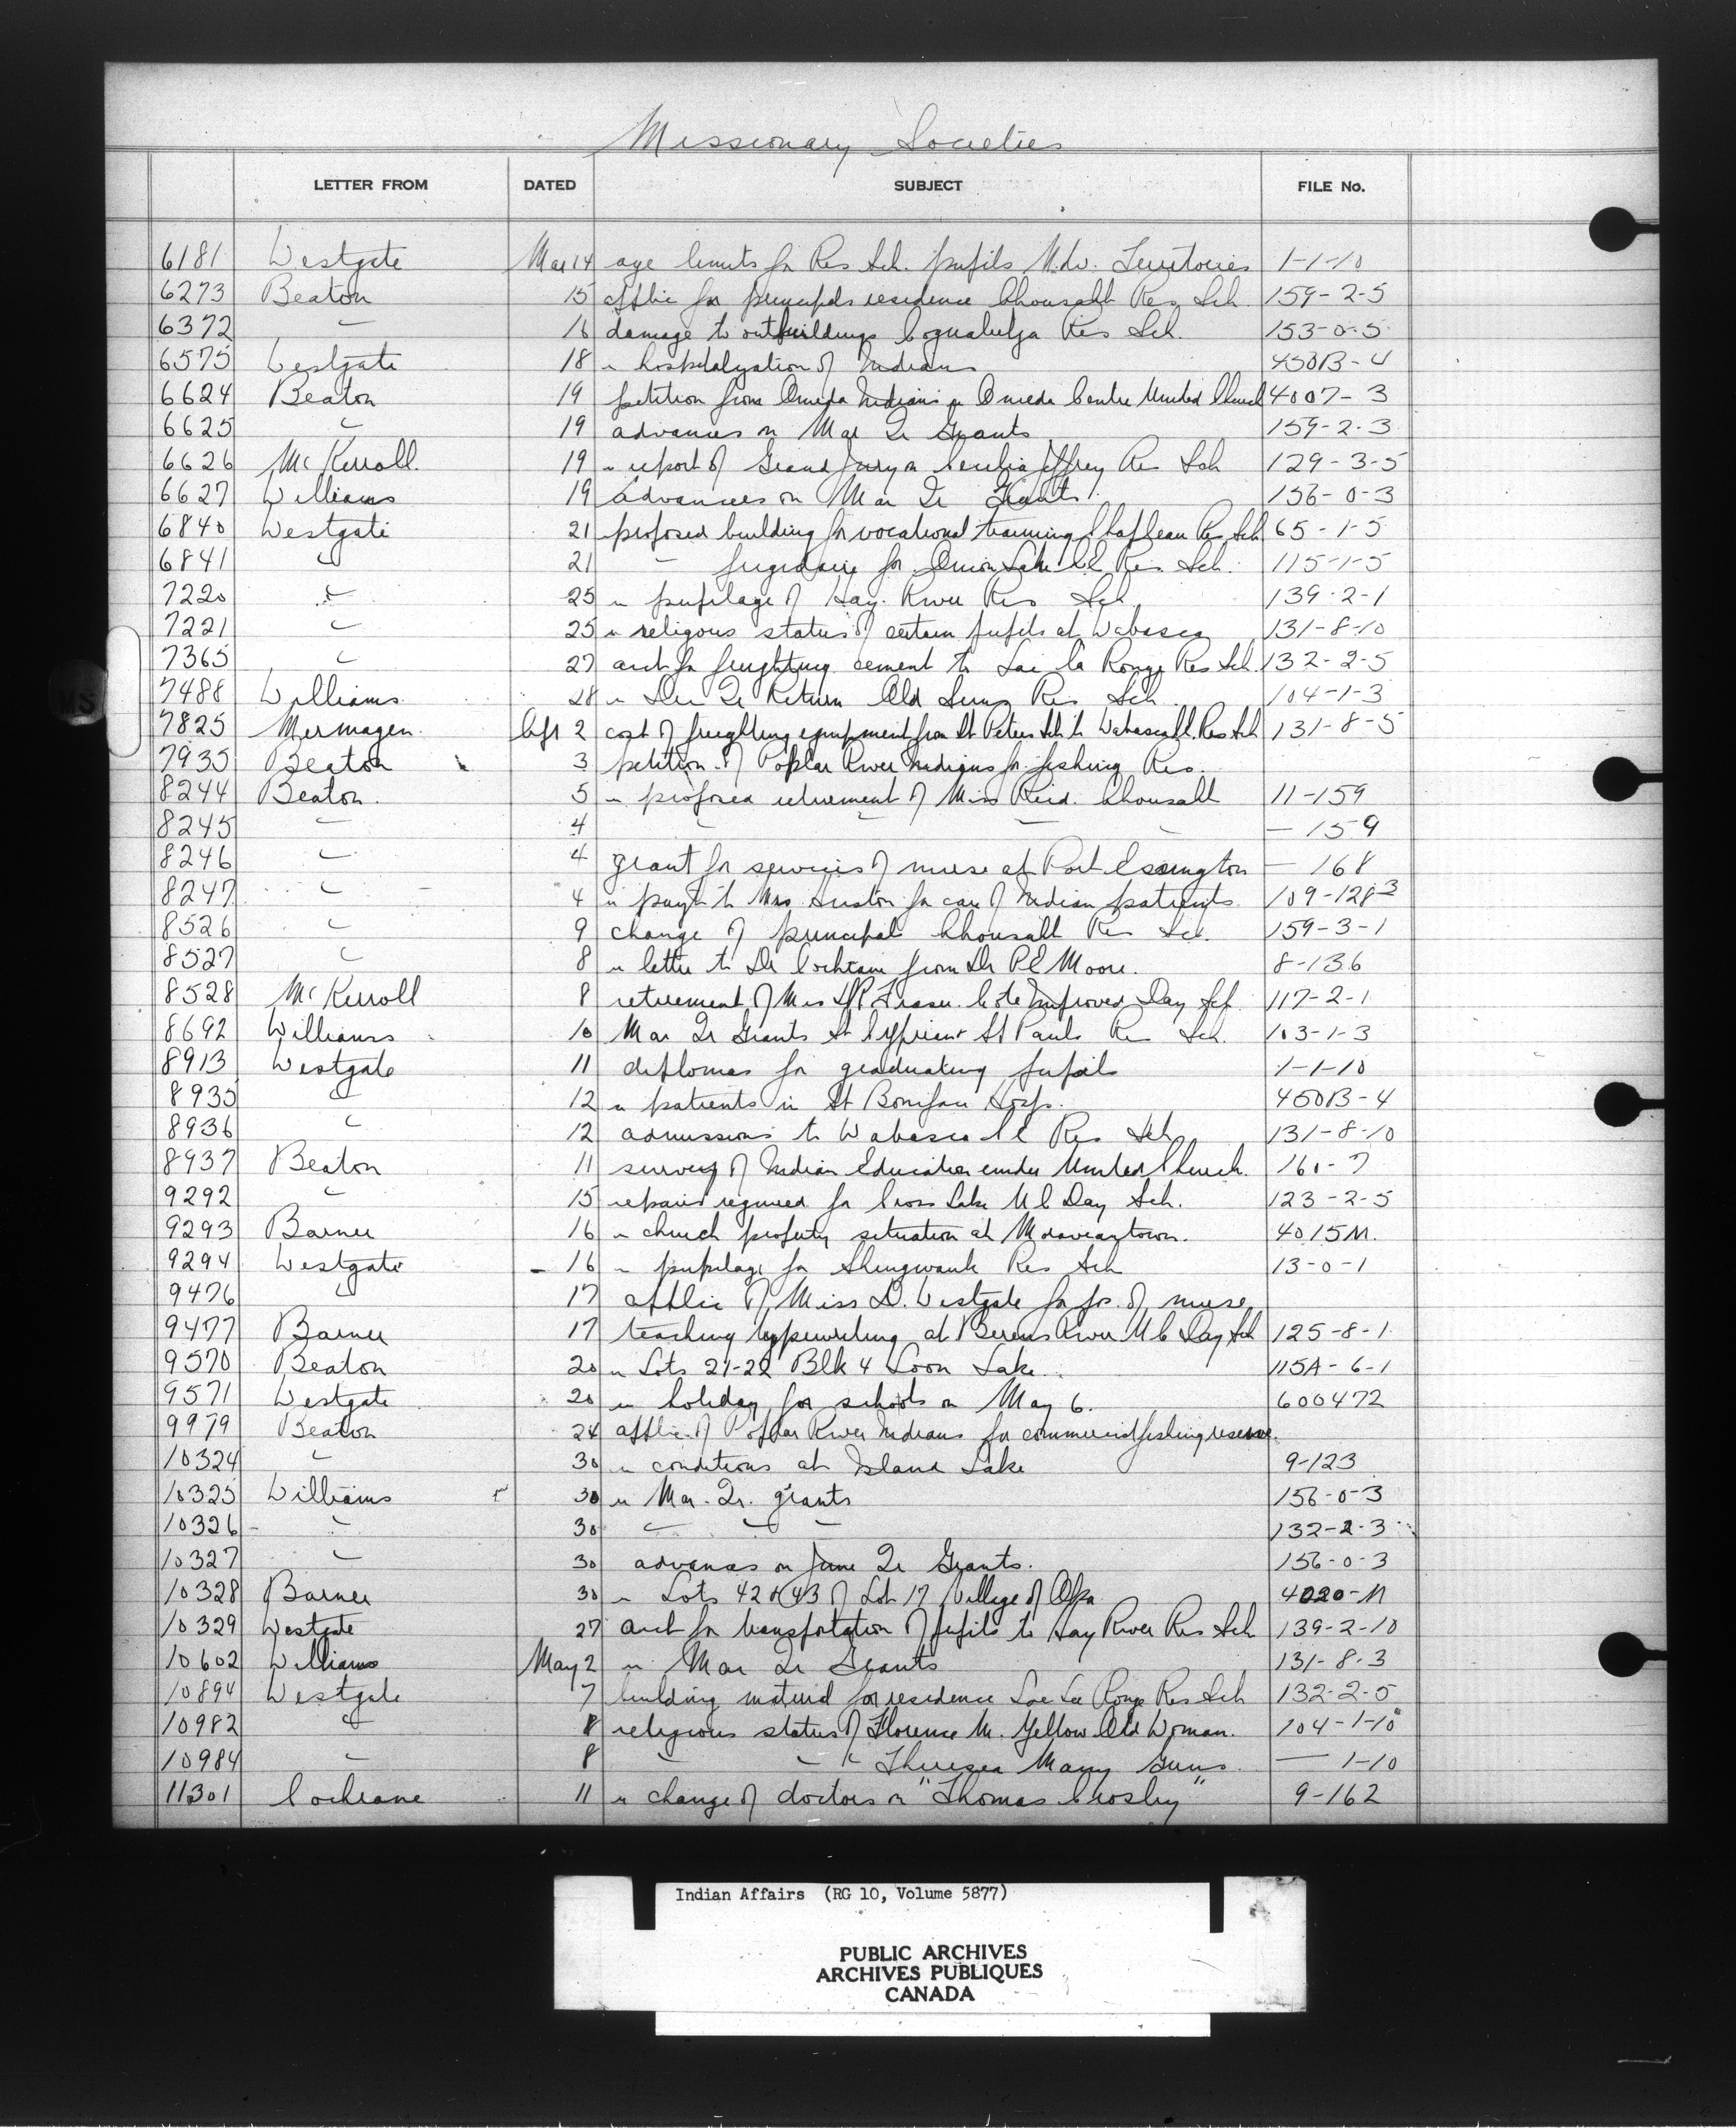 Missionary Societies
LETTER FROM DATED SUBJECT FILE No.
6181 Westgate Mar 14 age limits for Res Sch. pupils N.W. Territories 1-1-10
6273 Beaton 15 applic for principals residence Ahousaht Res Sch. 159-2-5
6372 " 16 damage to outbuildings Coqualeetza Res Sch. 153-0-5
6575 Westgate 18 re hospitalization of Indians 450B-4
6624 Beaton 19 petition from Oneida Indians re Oneida Centre United Church 4007-3
6625 " 19 advances on Mar Qr Grants 159-2-3
6626 McKerroll 19 re report of Grand Jury on Cecilia Jeffrey Res Sch 129-3-5
6627 Williams 19 Advances on Mar Qr Grants 156-0-3
6840 Westgate 21 proposed building for vocational training Chapleau Res Sch 65-1-5
6841 " 21 " frigidaire for Onion Lake CE Res. Sch. 115-1-5
7220 " 25 re pupilage of Hay River Res Sch 139-2-1
7221 " 25 re religous status of certain pupils at Wabasca 131-8-10
7365 " 27 acct for freighting cement to Lac la Ronge Res Sch. 132-2-5
7488 Williams 28 re Dec Qr Return Old Suns Res Sch 104-1-3
7825 Mermagen Apr 2 cost of freighting equipment from St Peters Sch to Wabasca CE Res Sch 131-8-5
7935 Beaton 3 petition of Poplar River Indians for fishing Res.
8244 Beaton 5 re proposed retirement of Miss Reid Ahousaht 11-159
8245 " 4 " " " " — 159
8246 " 4 grant for services of nurse at Port Essington — 168
8247 " 4 re paym't to Mrs Huston for care of Indian patients 109-128-3
8526 " 9 change of principal Ahousaht Res Sch. 159-3-1
8527 " 8 re letter to Dr Cochrane from Dr P E Moore. 8-136
8528 McKerroll 8 retirement of Mrs Fraser Cote Improved Day Sch 117-2-1
8692 Williams 10 Mar Qr Grants St Cyprian & St Pauls Res Sch. 103-1-3
8913 Westgate 11 diplomas for graduating pupils 1-1-10
8935 " 12 re patients in St Boniface Hosp. 450B-4
8936 " 12 admissions to Wabasca CE Res Sch 131-8-10
8937 Beaton 11 survey of Indian Education under United Church. 160-7
9292 " 15 repairs required for Cross Lake U C Day Sch. 123-2-5
9293 Barner 16 re church property situation at Moraviantown. 4015M.
9294 Westgate 16 re pupilage for Shingwauk Res Sch 13-0-1
9476 " 17 applic of Miss D. Westgate for pos. of nurse
9477 Barner 17 teaching typewriting at Berens River U C Day Sch 125-8-1
9570 Beaton 20 re Lots 21-22 Blk 4 Loon Lake 115A-6-1
9571 Westgate 20 re holiday for schools on May 6. 600472
9979 Beaton 24 applic of Poplar River Indians for commercial fishing reserve.
10324 " 30 re conditions at Island Lake 9-123
10325 Williams 30 re Mar. Qr. grants 156-0-3
10326 " 30 " " " 132-2-3
10327 " 30 advances on June Qr Grants. 156-0-3
10328 Barner 30 re Lots 42 & 43 of Lot 17 Village of Oka 4020-M
10329 Westgate 27 acct for transportation of pupils to Hay River Res Sch 139-2-10
10602 Williams May 2 re Mar Qr Grants 131-8-3
10894 Westgate 7 building material for residence Lac La Ronge Res Sch 132-2-5
10982 " 8 religious status of Florence M. Yellow Old Woman. 104-1-10
10984 " 8 " " " Theresa Many Guns — 1-10
11301 Cochrane 11 re change of doctors on "Thomas Crosby" 9-162
Indian Affairs (RG 10, Volume 5877)
PUBLIC ARCHIVES
ARCHIVES PUBLIQUES
CANADA